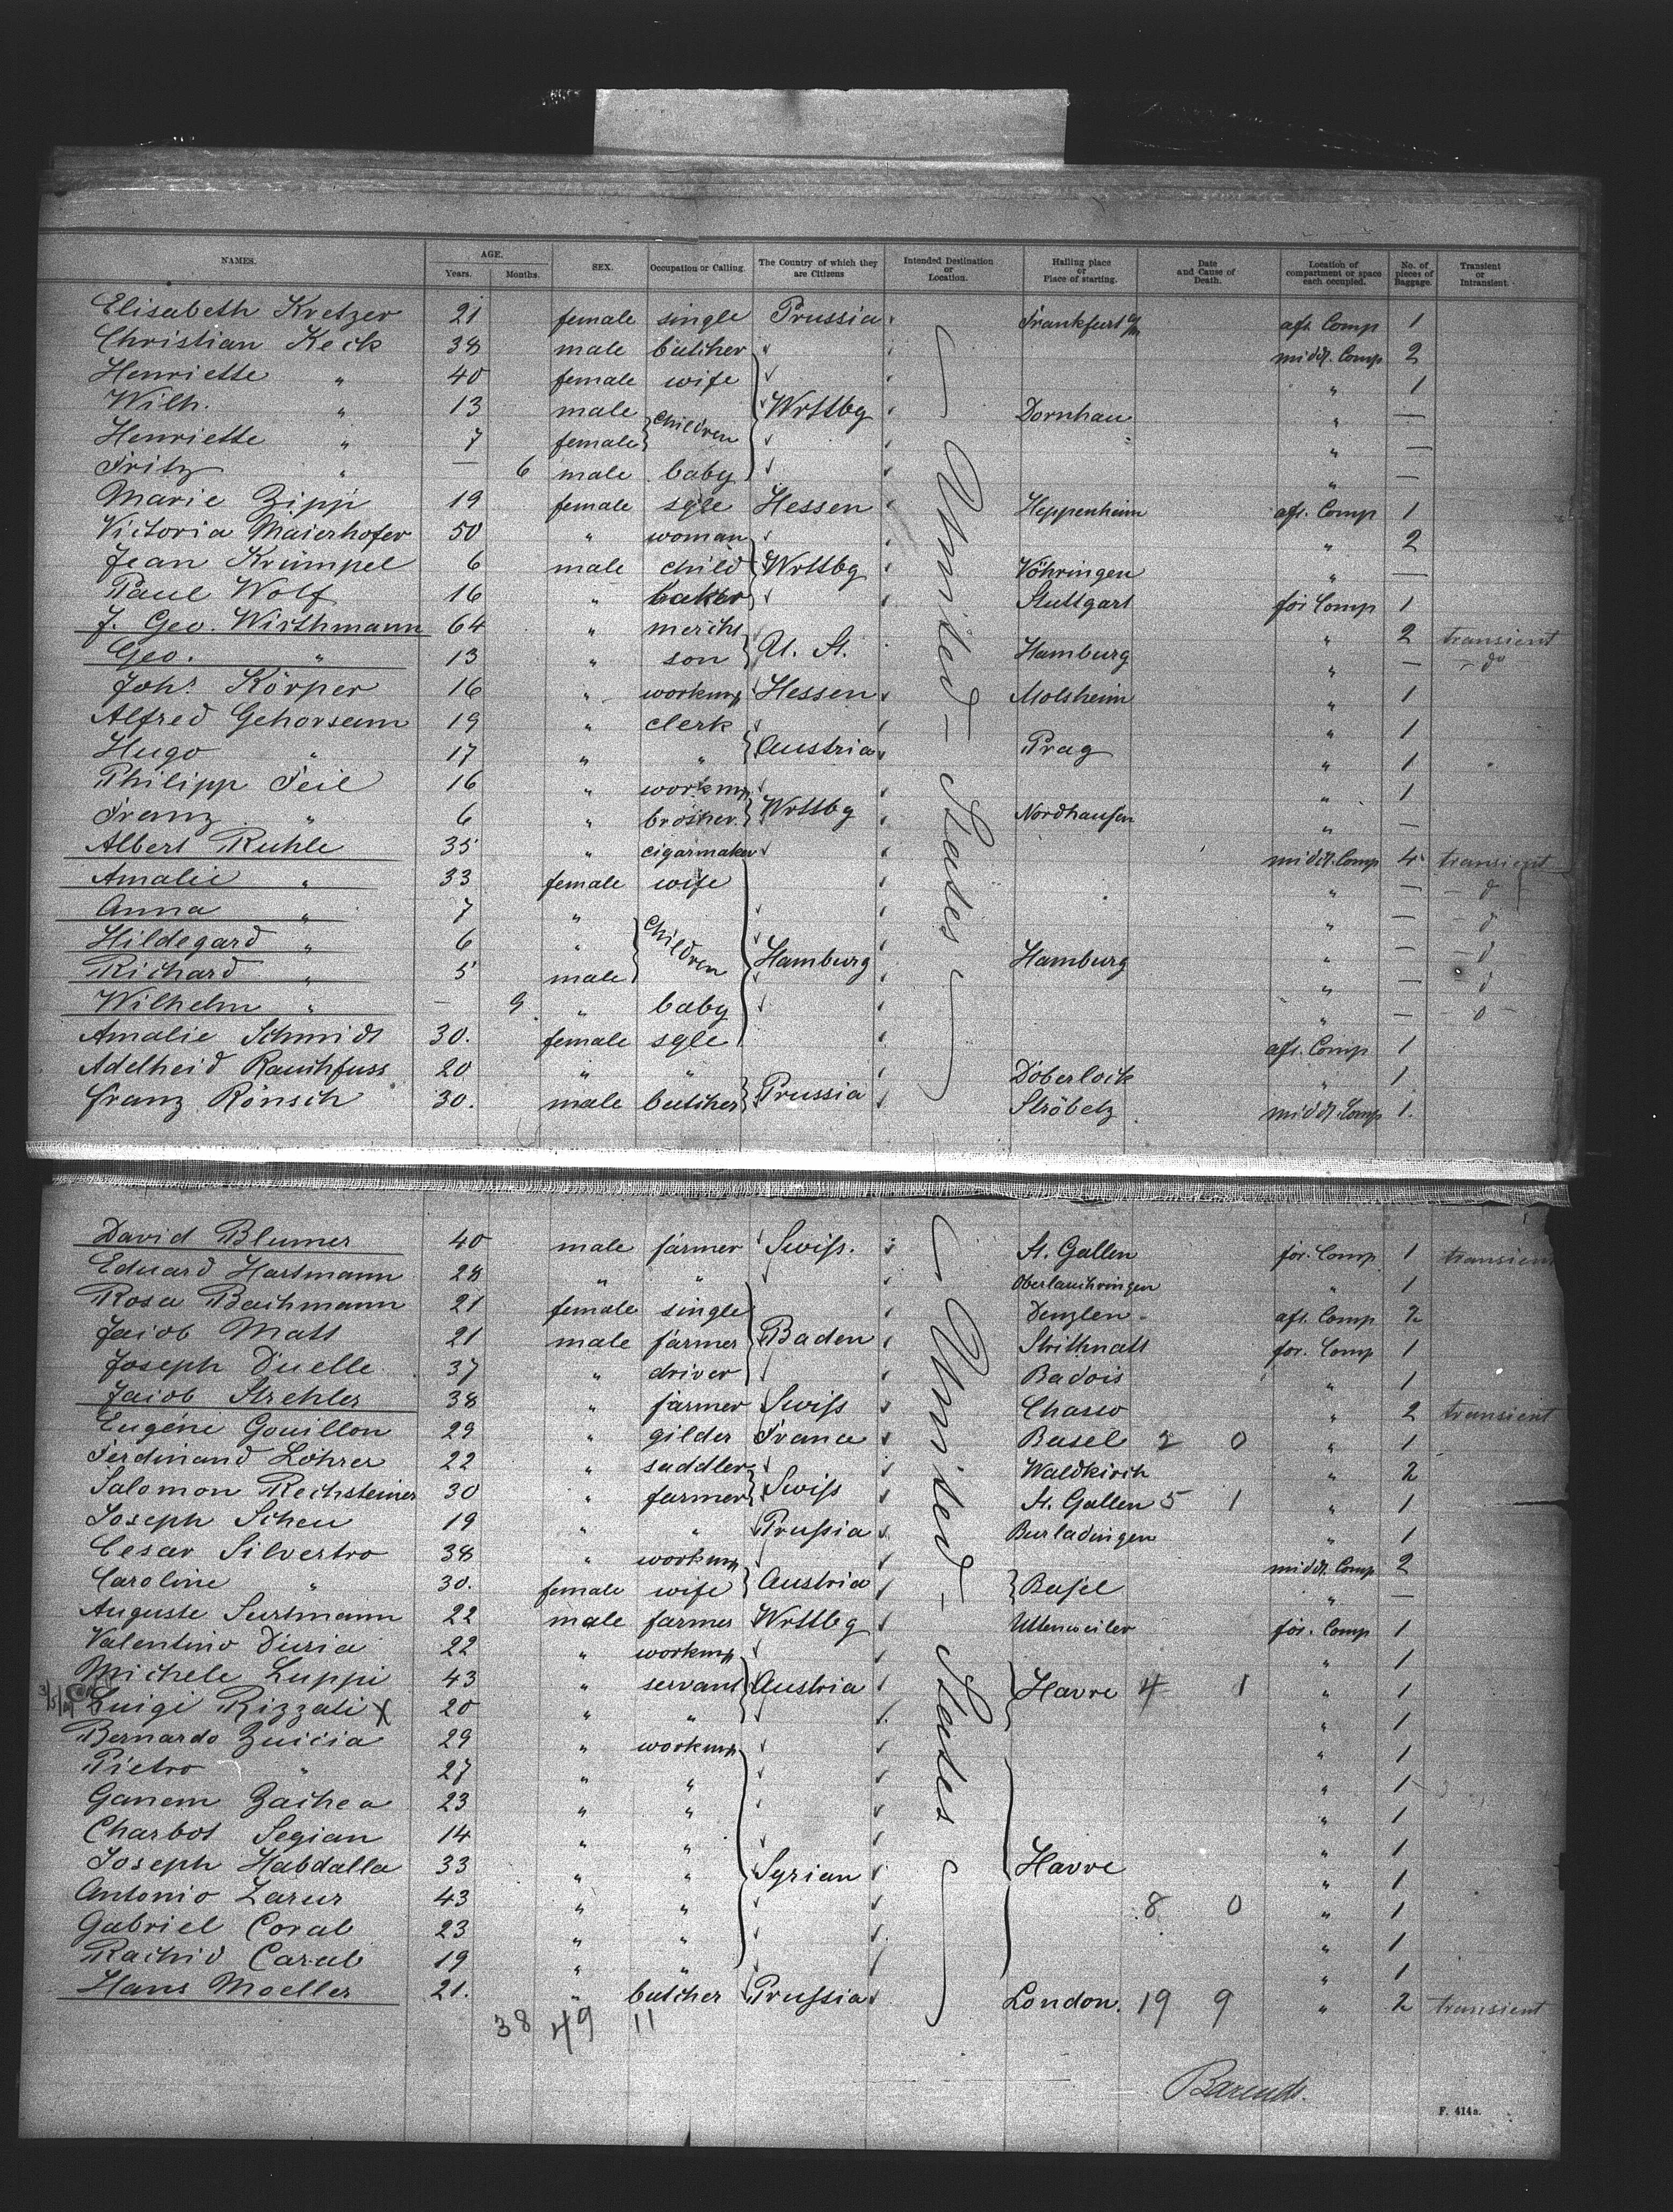 NAMES. AGE. Years. Months. SEX. Occupation or Calling. The Country of which they are Citizens Intended Destination or Location. Halling place or Place of starting. Date and Cause of Death. Location of compartment or space each occupied. No. of pieces of Baggage. Transient or Intransient.
Elisabeth Kretzer 21 female single Prussia Frankfurt a/M aft. Comp 1
Christian Keck 38 male butcher midd. Comp 2
Henriette " 40 female wife " 1
Wilh. " 13 male Children Wrttbg Dornhau " —
Henriette " 7 female " —
Fritz " — 6 male baby " —
Marie Zipp 19 female sgle Hessen Heppenheim aft. Comp 1
Victoria Maierhofer 50 " woman " 2
Jean Krümpel 6 male child Wrttbg Vöhringen " —
Paul Wolf 16 " baker Stuttgart for Comp 1
J. Geo. Wirthmann 64 " mercht " 2 transient
Geo. " 13 " son U. St. Hamburg " — - do
Joh. Körper 16 " workmn Hessen Molsheim " 1
Alfred Gehorsam 19 " clerk " 1
Hugo " 17 " " Austria Prag " 1
Philipp Feil 16 " workmn " 1
Franz " 6 " brother Wrttbg Nordhausen " —
Albert Ruhle 35 " cigarmaker midd. Comp 4 transient
Amalie " 33 female wife " — - d
Anna " 7 " " — - d
Hildegard " 6 " Children " — - d
Richard " 5 male Hamburg Hamburg " — d
Wilhelm " — 9 " baby " — - d -
Amalie Schmidt 30. female sgle aft. Comp 1
Adelheid Rauchfuss 20 " " Döberlock " 1
Franz Rönsch 30. male butcher Prussia Ströbelz midd. Comp 1.
— United - States —
David Blumer 40 male farmer Swiss. St. Gallen for. Comp 1 transient
Eduard Hartmann 28 " " Oberlauchringen " 1
Rosa Bachmann 21 female single Denzlen aft. Comp 2
Jacob Matt 21 male farmer Baden for. Comp 1
Joseph Duelle 37 " driver Badois " 1
Jacob Strehler 38 " farmer Swiss " 2 transient
Eugéne Gouillon 29 " gilder France Basel 2 0 " 1
Ferdinand Lohrer 22 " saddler Waldkirch " 2
Salomon Rechsteiner 30 " farmer Swiss St. Gallen 5 1 " 1
Joseph Scheu 19 " " Prussia Burladingen " 1
Cesar Silvestro 38 " workmn midd. Comp 2
Caroline " 30. female wife Austria Basel " —
Auguste Surtmann 22 male farmer Wrttbg Uttenweiler for. Comp 1
Valentino Duria 22 " workmn " 1
Michele Luppi 43 " servant Austria Havre 4 1 " 1
Luigi Rizzati X 20 " " " 1
Bernardo Zuicia 29 " workmn " 1
Pietro " 27 " " " 1
Ganem Zachea 23 " " " 1
Charbot Segian 14 " " " 1
Joseph Habdalla 33 " " Syrian Havre " 1
Antonio Zarur 43 " " 8 0 " 1
Gabriel Corab 23 " " " 1
Rachid Carab 19 " " " 1
Hans Moeller 21. " butcher Prussia London. 19 9 " 2 transient
— United - States —
38 49 11
Barends.
F. 414a.